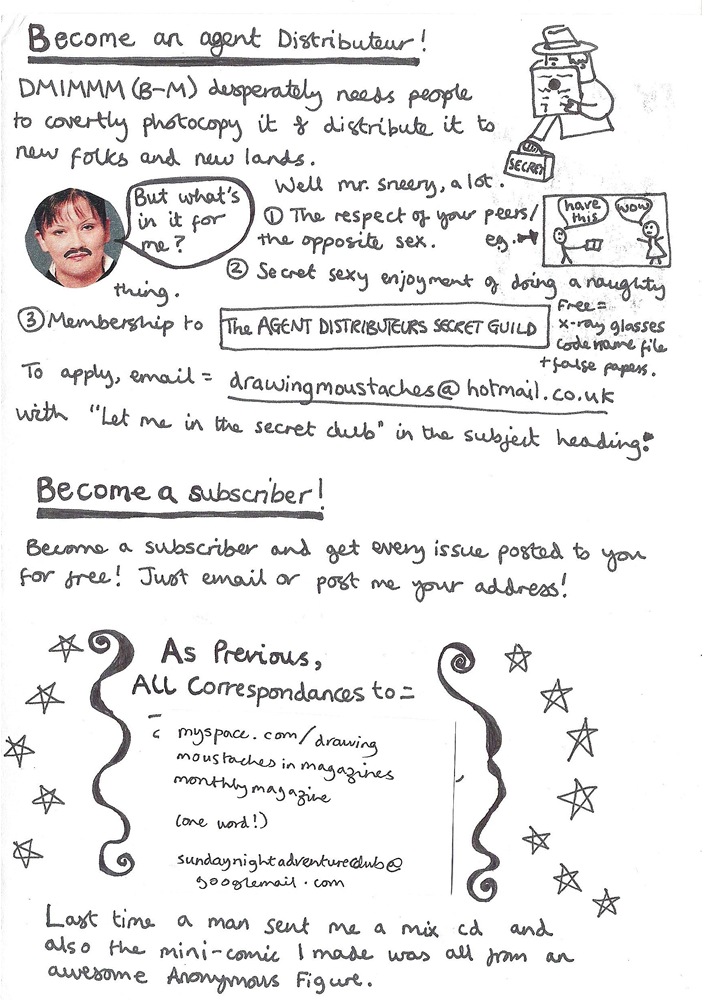 Become an agent Distributeur!
DMIMMM (B-M) desperately needs people
to covertly photocopy it & distribute it to
new folks and new lands.
SECRET
But what's
in it for
me?
Well mr. sneery, a lot.
① The respect of your peers/
the opposite sex.
eg.
have
this
wow
② Secret sexy enjoyment of doing a naughty
thing.
③ Membership to
The AGENT DISTRIBUTEURS SECRET GUILD
Free =
x-ray glasses
code name file
+ false papers.
To apply, email = drawingmoustaches@hotmail.co.uk
with "Let me in the secret club" in the subject heading!
Become a subscriber!
Become a subscriber and get every issue posted to you
for free! Just email or post me your address!
As Previous,
ALL Correspondances to =
myspace.com/drawing
moustaches in magazines
monthly magazine
(one word!)
sundaynightadventureclub@
googlemail.com
Last time a man sent me a mix cd and
also the mini-comic I made was all from an
awesome Anonymous Figure.